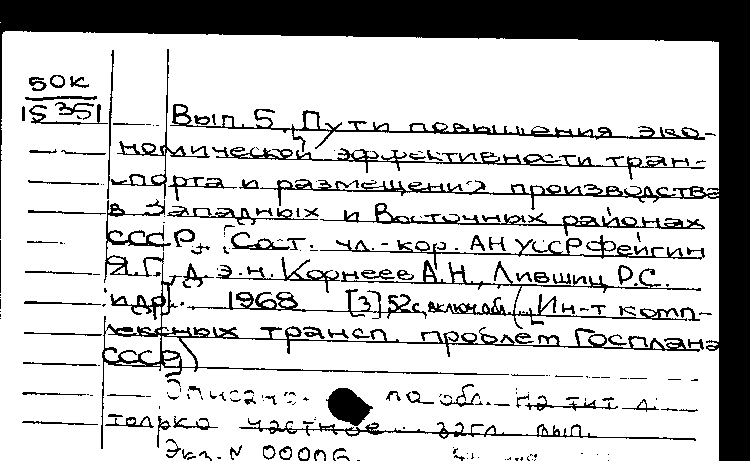 50К
15351
Вып. 5. Пути повышения эко-
номической эффективности тран-
спорта и размещения производства
в Западных и Восточных районах
СССР. [Сост. чл.-кор. АН УССР Фейгин
Я.Г., д.э.н. Корнеев А.Н., Лившиц Р.С.
и др]. 1968 [3] 52с. включ. обл. (Ин-т комп-
лексных трансп. проблем Госплана
СССР)
Описано по обл. На тит. л.
только частное загл. вып.
Экз. N 00006.